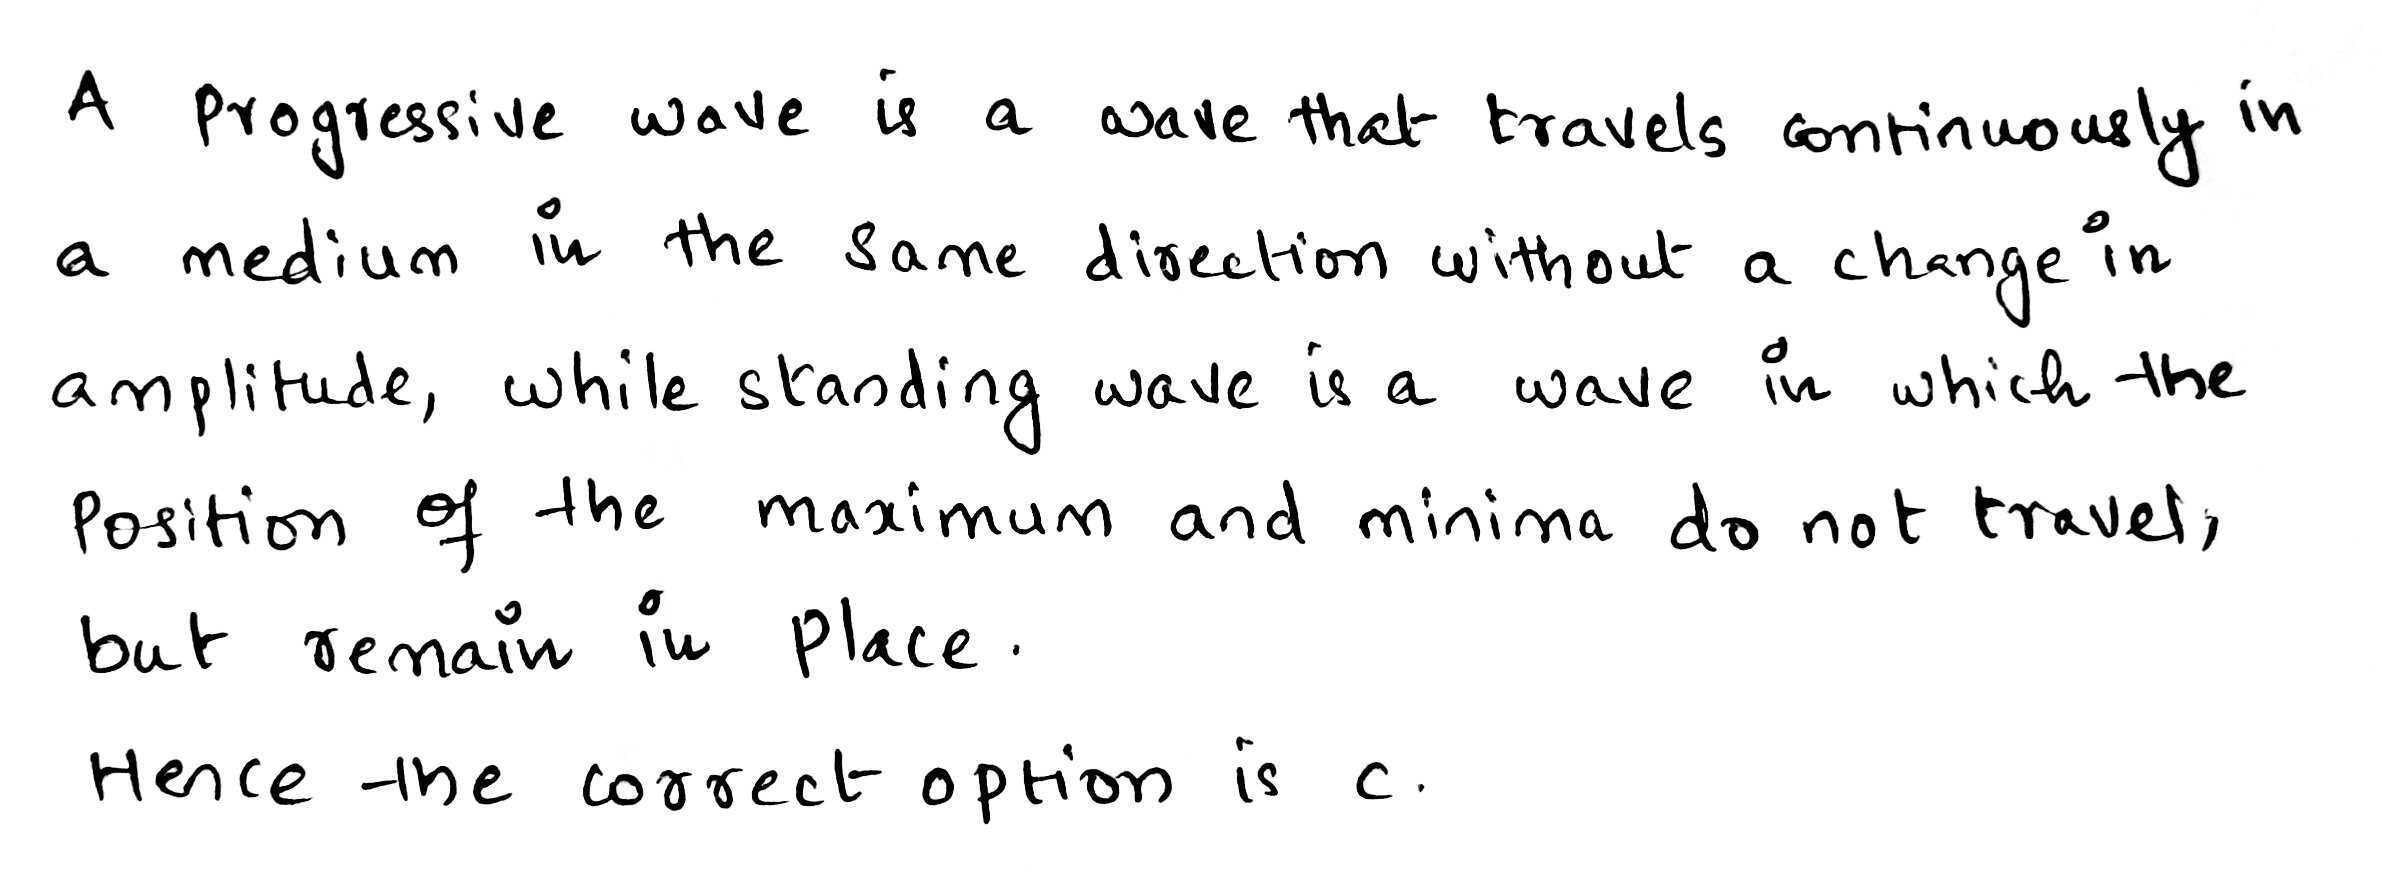 A Progressive wave is a wave that travels continuously in
a medium in the same direction without a change in
amplitude, while standing wave is a wave in which the
Position of the maximum and minima do not travel,
but remain in place.
Hence the correct option is c.